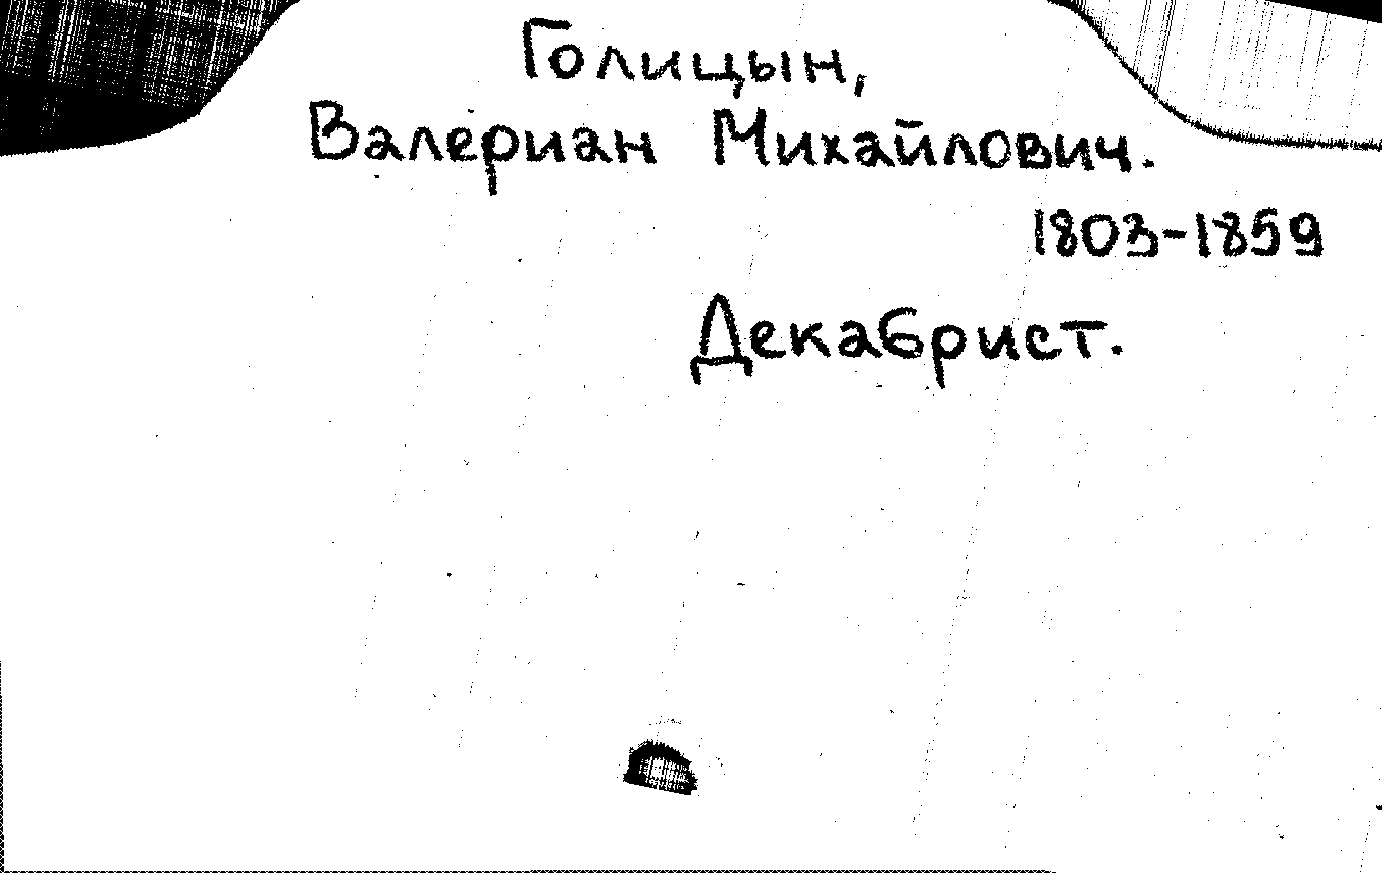 Голицын,
Валериан Михайлович.
1803-1859
Декабрист.